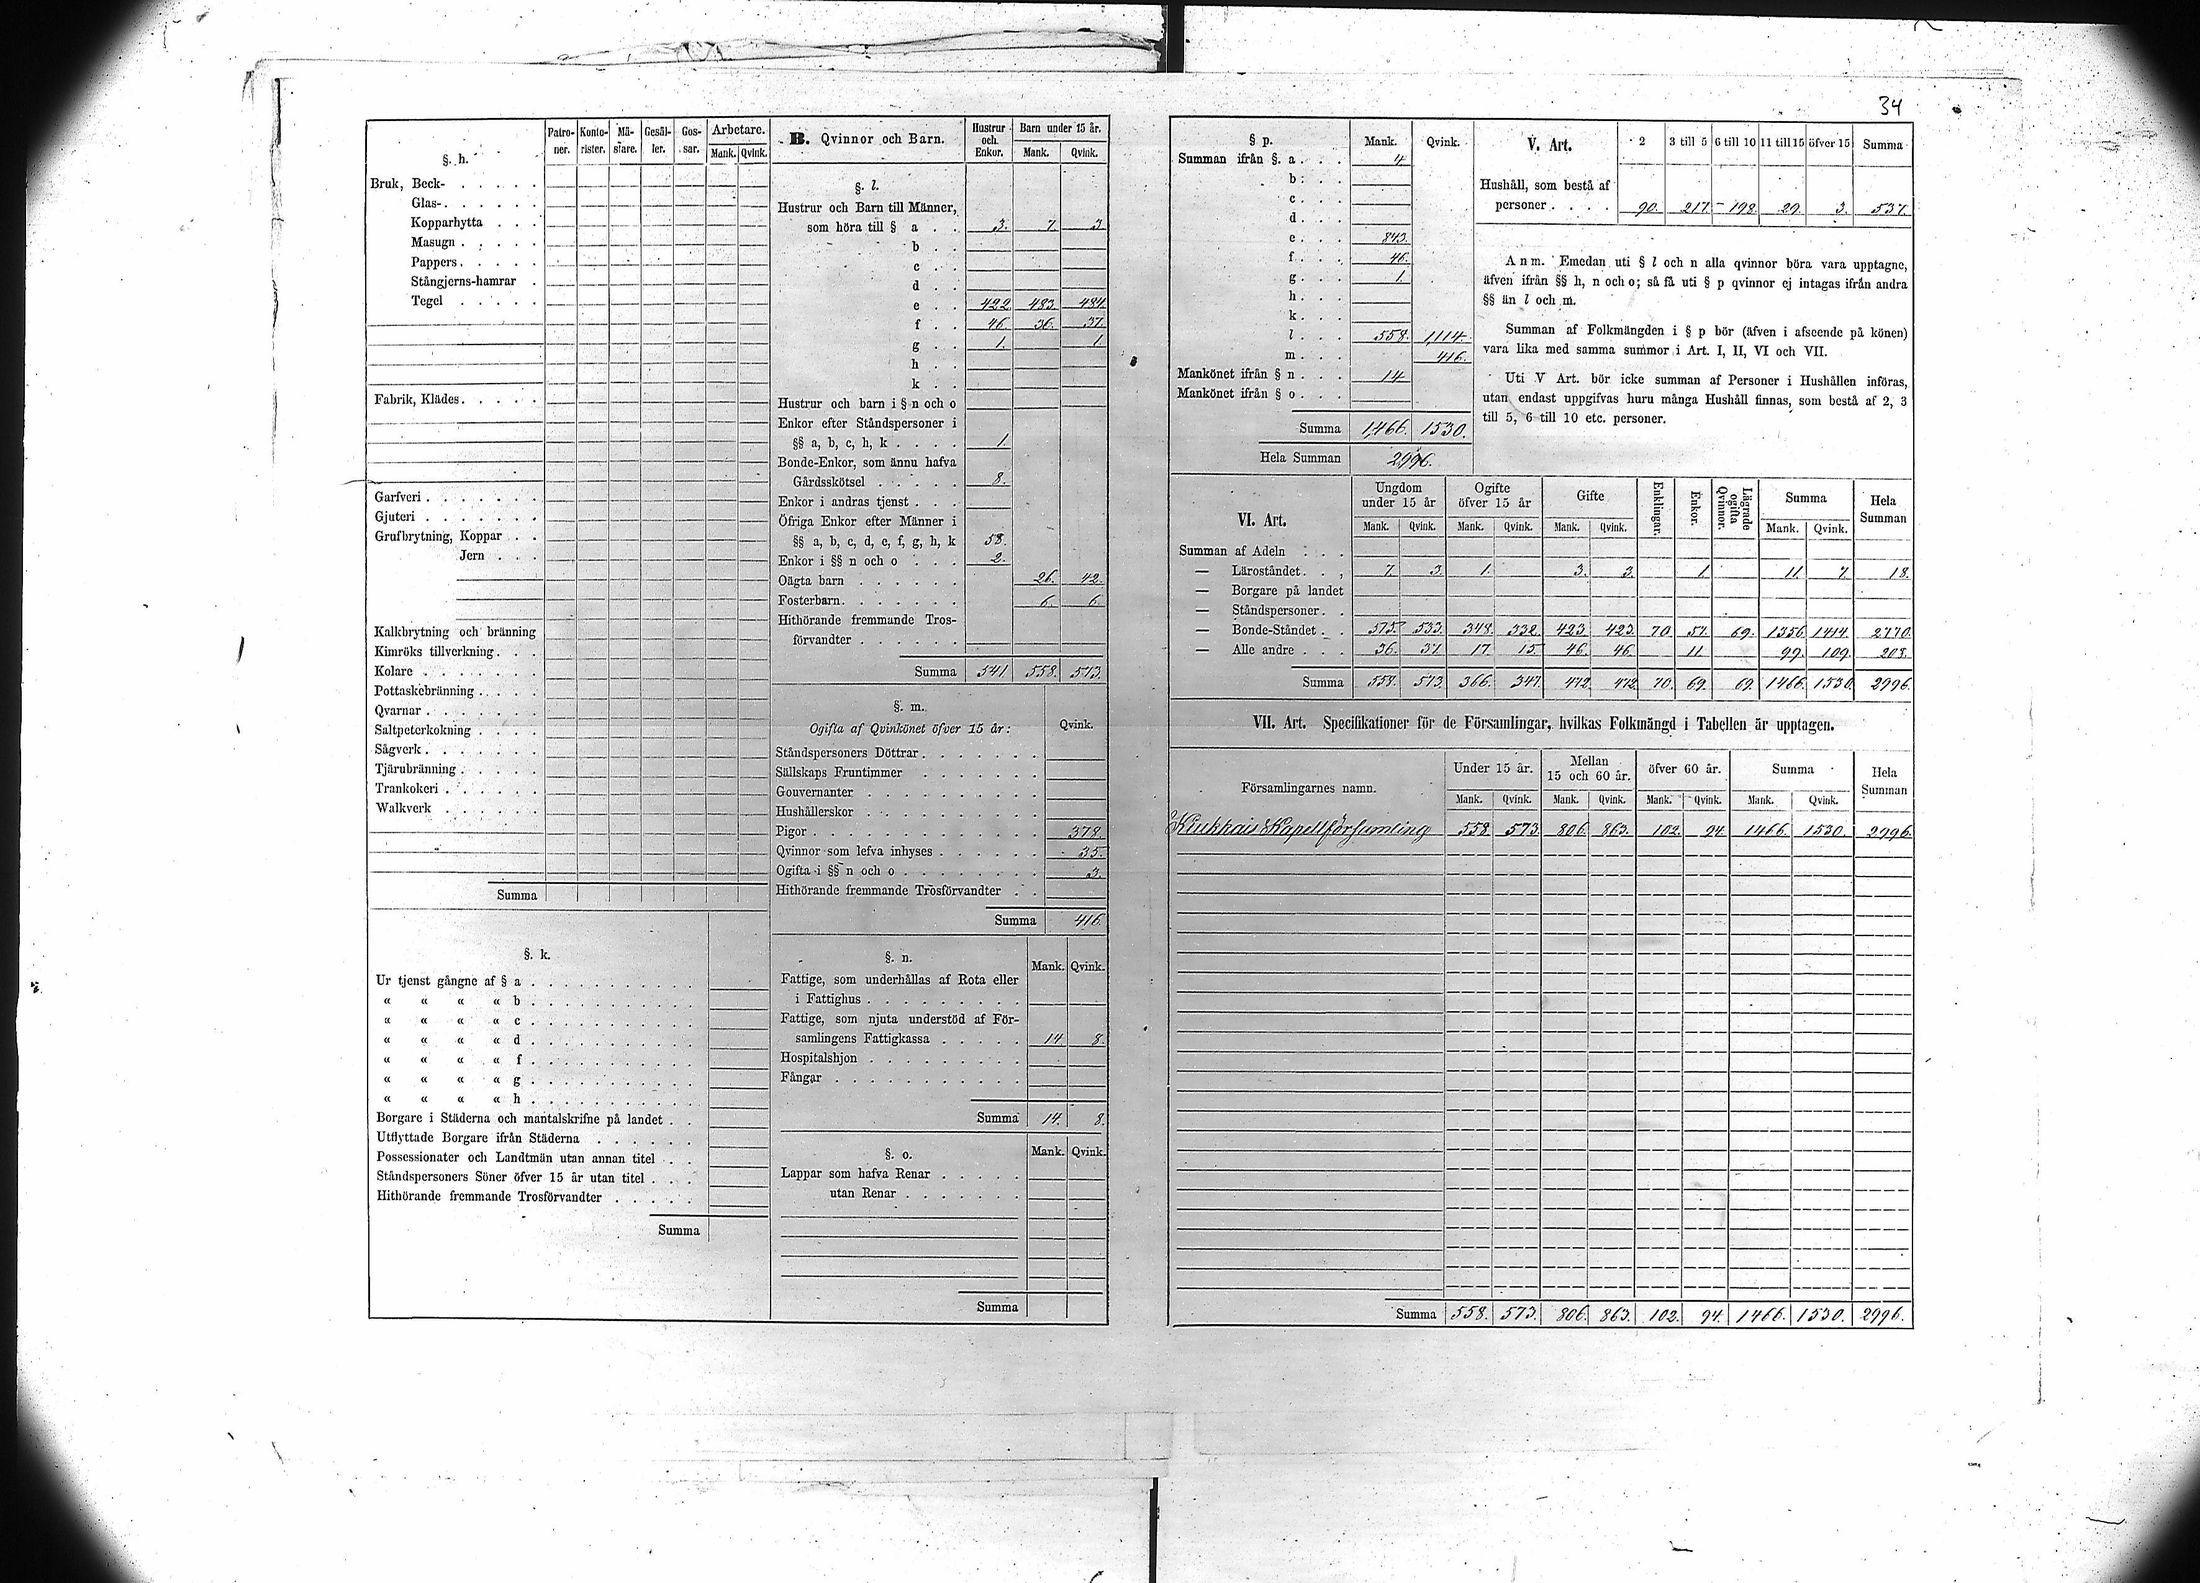 34
§. h.
Patroner. Kontorister. Mästare. Gesäller. Gossar. Arbetare. Mank. Qvink.
Bruk, Beck-
Glas-
Kopparhytta
Masugn
Pappers
Stångjerns-hamrar
Tegel
Fabrik, Klädes
Garfveri
Gjuteri
Grufbrytning, Koppar
Jern
Kalkbrytning och bränning
Kimröks tillverkning
Kolare
Pottaskebränning
Qvarnar
Saltpeterkokning
Sågverk
Tjärubränning
Trankokeri
Walkverk
Summa
§. k.
Ur tjenst gångne af § a
« « « « b
« « « « c
« « « « d
« « « « f
« « « « g
« « « « h
Borgare i Städerna och mantalskrifne på landet
Utflyttade Borgare ifrån Städerna
Possessionater och Landtmän utan annan titel
Ståndspersoners Söner öfver 15 år utan titel
Hithörande fremmande Trosförvandter
Summa
B. Qvinnor och Barn. Hustrur och Enkor. Barn under 15 år. Mank. Qvink.
§. l.
Hustrur och Barn till Männer,
som höra till § a 3. 7. 3
b
c
d
e 422 483 484
f 46. 36. 37.
g 1. 1
h
k
Hustrur och barn i § n och o
Enkor efter Ståndspersoner i
§§ a, b, c, h, k 1.
Bonde-Enkor, som ännu hafva
Gårdsskötsel 8.
Enkor i andras tjenst
Öfriga Enkor efter Männer i
§§ a, b, c, d, e, f, g, h, k 58.
Enkor i §§ n och o 2.
Oägta barn 26. 42.
Fosterbarn 6. 6.
Hithörande fremmande Trosförvandter
Summa 541 558 573.
§. m.
Ogifta af Qvinkönet öfver 15 år: Qvink.
Ståndspersoners Döttrar
Sällskaps Fruntimmer
Gouvernanter
Hushållerskor
Pigor 378
Qvinnor som lefva inhyses 35.
Ogifta i §§ n och o 3.
Hithörande fremmande Trosförvandter
Summa 416.
§. n. Mank. Qvink.
Fattige, som underhållas af Rota eller
i Fattighus
Fattige, som njuta understöd af Församlingens Fattigkassa 14 8.
Hospitalshjon
Fångar
Summa 14. 8.
§. o. Mank. Qvink.
Lappar som hafva Renar
utan Renar
Summa
§ p. Mank. Qvink.
Summan ifrån §. a 4
b
c
d
e 843.
f 46.
g 1.
h
k
l 558. 1,114.
m 416.
Mankönet ifrån § n 14
Mankönet ifrån § o
Summa 1,466. 1530.
Hela Summan 2996.
V. Art. 2 3 till 5 6 till 10 11 till 15 öfver 15 Summa
Hushåll, som bestå af
personer 90. 217. 198. 29. 3. 537.
Anm. Emedan uti § l och n alla qvinnor böra vara upptagne,
äfven ifrån §§ h, n och o; så få uti § p qvinnor ej intagas ifrån andra
§§ än l och m.
Summan af Folkmängden i § p bör (äfven i afseende på könen)
vara lika med samma summor i Art. I, II, VI och VII.
Uti V Art. bör icke summan af Personer i Hushållen införas,
utan endast uppgifvas huru många Hushåll finnas, som bestå af 2, 3
till 5, 6 till 10 etc. personer.
VI. Art. Ungdom under 15 år Ogifte öfver 15 år Gifte Enklingar. Enkor. Lägrade ogifta Qvinnor. Summa Hela Summan
Mank. Qvink. Mank. Qvink. Mank. Qvink. Mank. Qvink.
Summan af Adeln
— Läroståndet 7. 3. 1. 3. 3. 1. 11. 7. 18.
— Borgare på landet
— Ståndspersoner
— Bonde-Ståndet 515. 533. 348. 332. 423. 423. 70 57. 69. 1356. 1414. 2770.
— Alle andre 36. 37. 17. 15 46. 46. 11 99. 109. 208.
Summa 558. 573. 366. 347. 472. 472. 70. 69. 69. 1466. 1530. 2996.
VII. Art. Specifikationer för de Församlingar, hvilkas Folkmängd i Tabellen är upptagen.
Församlingarnes namn. Under 15 år. Mellan 15 och 60 år. öfver 60 år. Summa Hela Summan
Mank. Qvink. Mank. Qvink. Mank. Qvink. Mank. Qvink.
Kiukkais Kapellförsamling 558 573. 806. 863. 102. 94. 1466. 1530. 2996.
Summa 558. 573. 806. 863. 102. 94. 1466. 1530. 2996.